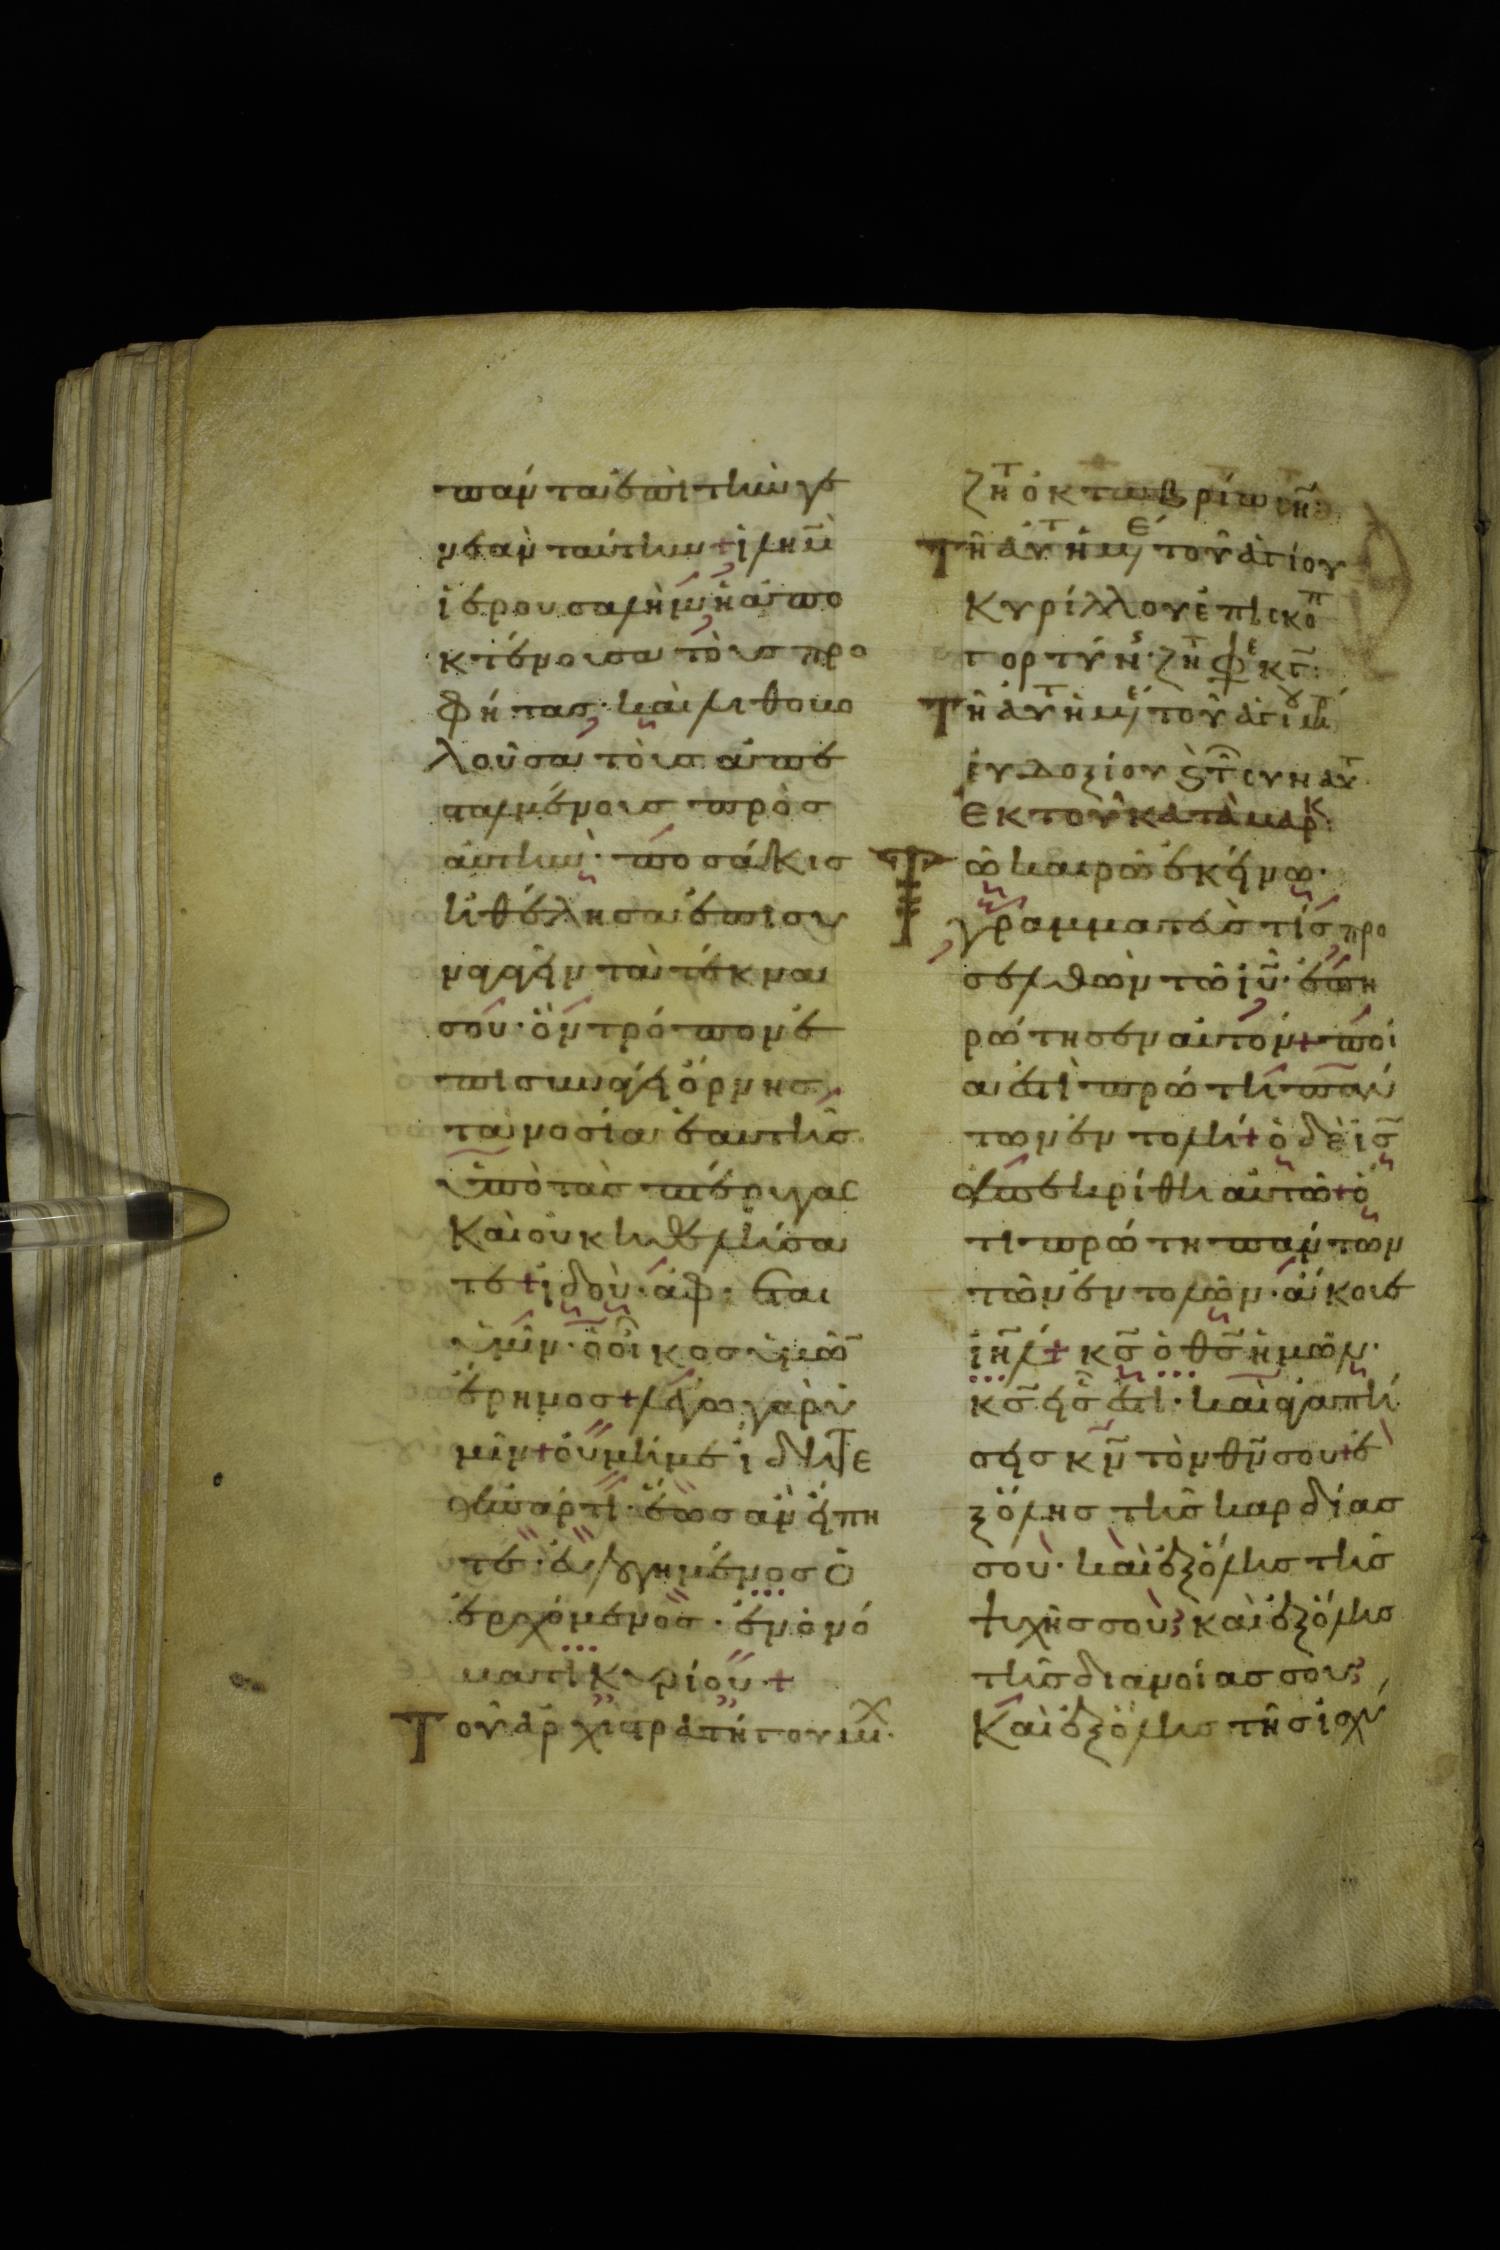 πάντα ἐπὶ τὴν γε
νεὰν ταύτην + ἰλη̅μ
ἰερουσαλὴμ ἡ ἀπο
κτένουσα τοὺς προ
φήτας· καὶ λιθοβο
λοῦσα τοὺς ἀπε
σταλμένους πρὸς
αὐτήν· ποσάκις
ἠθέλησα ἐπισυ
ναγαγεῖν τὰ τέκνα
σου· ὃν τρόπον ἐ
πισυνάγει ὄρνης
τὰ νοσία ἑαυτῆς
ὑπὸ τὰς πτέρυγας
καὶ οὐκ ἠθελήσα
τε + ἰδοὺ· ἀφίεται
ὑμῖν· ὁ οἶκος ὑμῶ̅
ἔρημος + λέγω γὰρ ὑ
μῖν + οὐ μή με ἴδητε
ἀπάρτι· ἕως ἂν εἴπη
τε· εὐλογημένος ὁ
ἐρχόμενος· ἐν ὀνό
ματι κυρίου +
Τοῦ ἀρχιστρατήγου μιχ
ζητ ὀκτωβρίω
Τῆ αὐτ ἡμ τοῦ ἁγίου
Κυρίλλου ἐπισκοπ
γορτύν· ζητ
Τῆ αὐτ ἡμ τοῦ ἁγίου μρτ
εὐδοξίου ς τ συν αὐτ
Ἐκ τοῦ κατὰ μαρκ:
Τῶ καιρῶ ἐκείνω·
γραμματεύς τίς προ
σελθὼν τῶ ι̅υ· ἐπη
ρώτησεν αὐτόν + ποί
α ἐστὶ πρώτη παν
των ἐντολή + ὁ δὲ ι̅ς
ἀπεκρίθη αὐτῶ + ὁ
τι πρώτη πάντων
τῶν ἐντολῶν· ἄκουε
ιη̅λ + κ̅ς ὁ θ̅ς ἡμῶν·
κ̅ς εἷς ἐστι· καὶ ἀγαπή
σεις κ̅ν τὸν θ̅ν σου + ἐ
ξ ὅλης τῆς καρδίας
σου· καὶ ἐξ ὅλης τῆς
ψυχῆς σου· καὶ ἐξ ὅλης
τῆς διανοίας σου·
Καὶ ἐξ ὅλης τῆς ἰσχύ